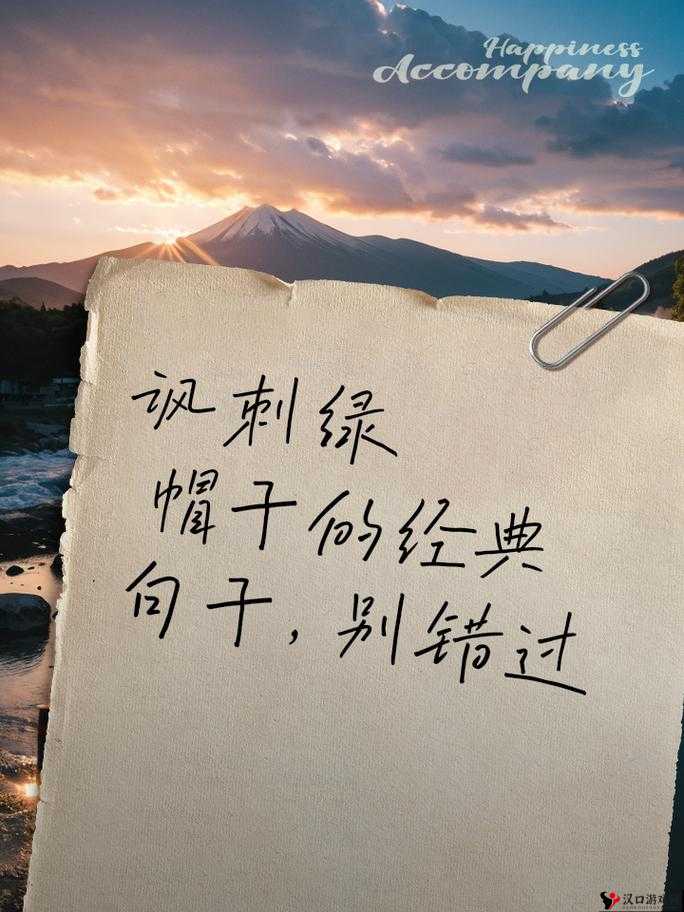 Happiness
Accompany
讽刺绿
帽子的经典
句子，别错过
汉口游戏